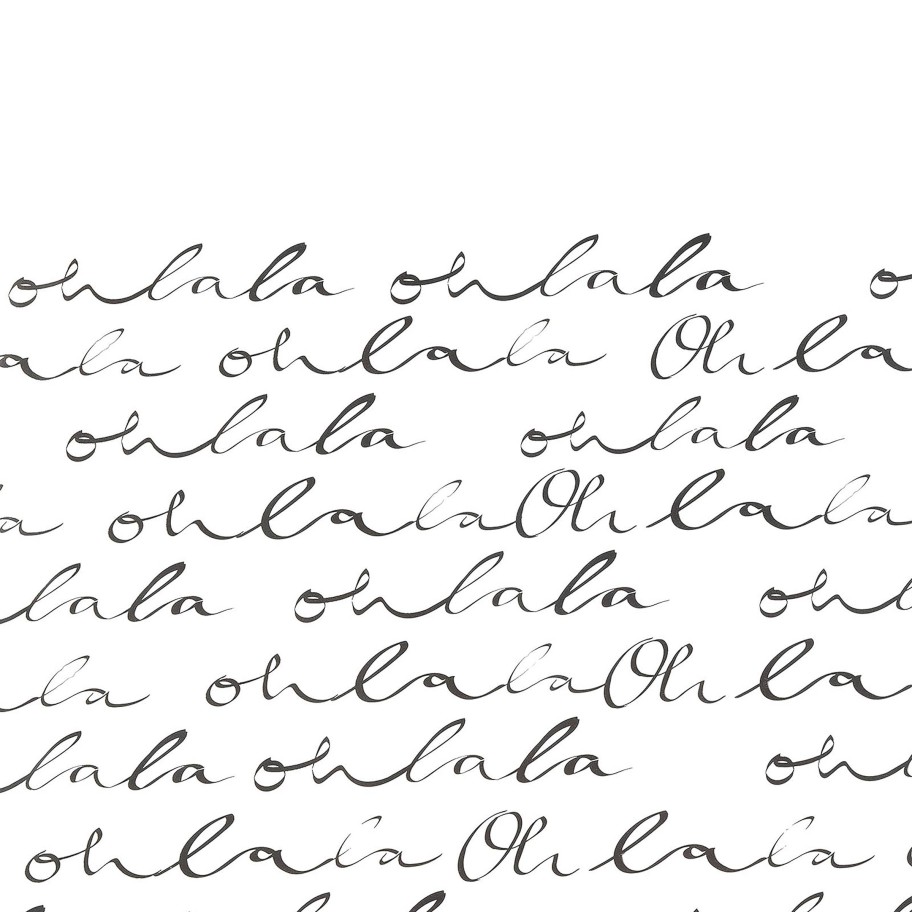 ohlala ohlala o
ala ohlala Oh la
ohlala ohlala
a ohlala Oh lala
lala ohlala ohl
la ohlala Oh la
lala ohlala oh
ohlala Oh lala